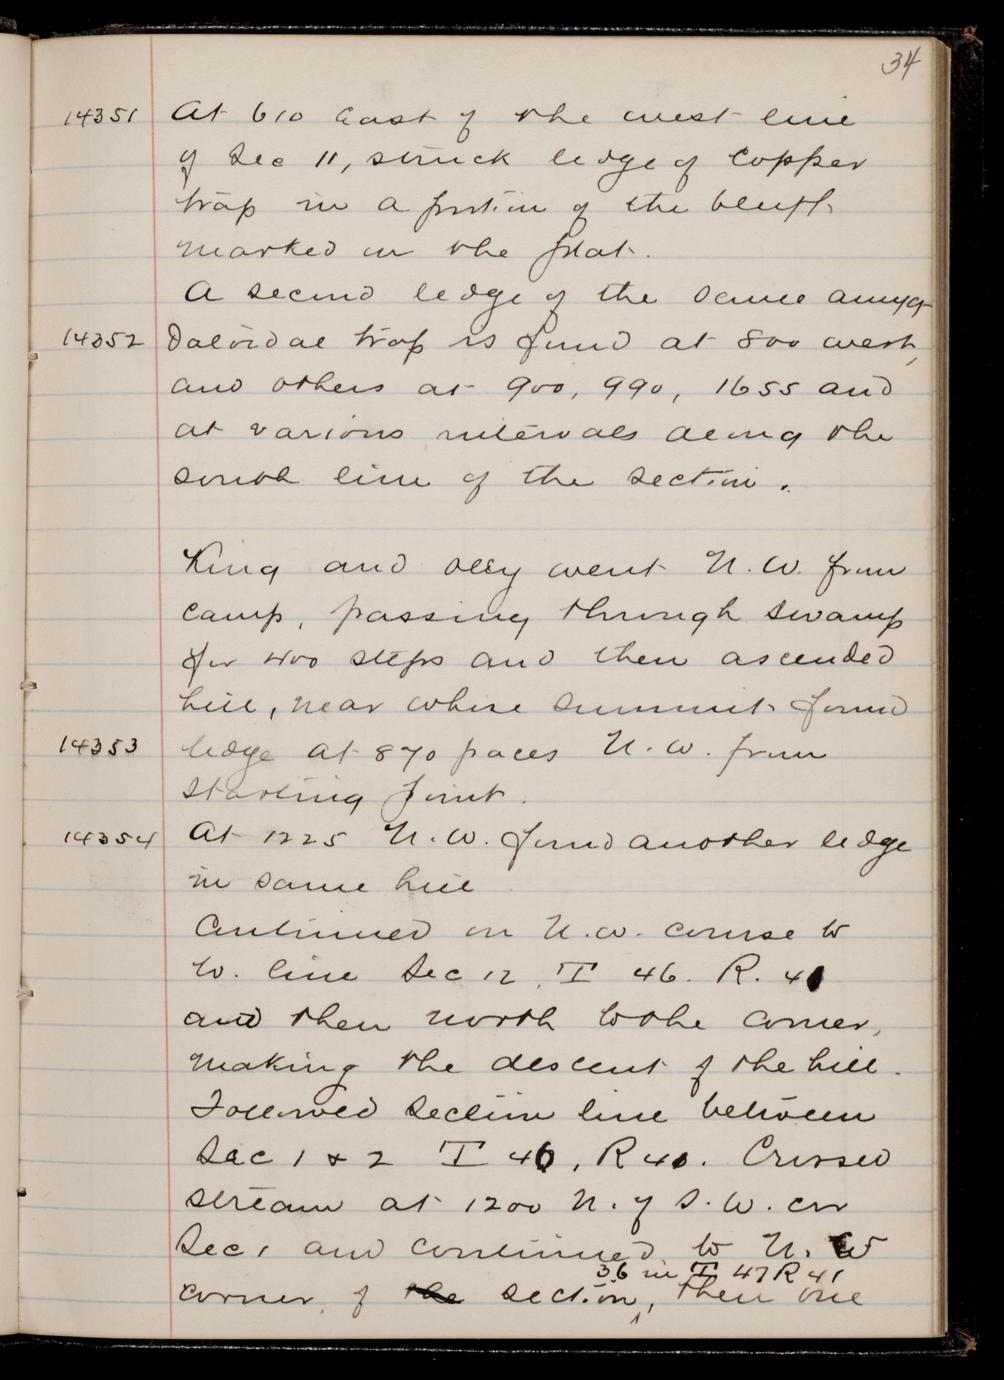 34
14351 At 610 East of the west line
of Sec 11, struck ledge of Copper
trap in a portion of the bluff
marked on the plat.
A second ledge of the same amyg-
14352 daloidal trap is found at 800 west,
and others at 900, 990, 1655 and
at various intervals along the
south line of the section.
King and went N.W. from
camp, passing through swamp
for 400 steps and then ascended
hill, near whose summit found
14353 ledge at 870 paces N.W. from
starting point.
14354 At 1225 N.W. found another ledge
in same hill
Continued on N.W. course to
W. line Sec 12, T 46. R. 41
and then north to the corner,
making the descent of the hill.
Followed section line between
Sec 1 & 2 T 46, R 41. Crossed
stream at 1200 N. of S.W. cor
Sec 1 and continued to N.W
36 in T 47 R 41
corner of the section, then one